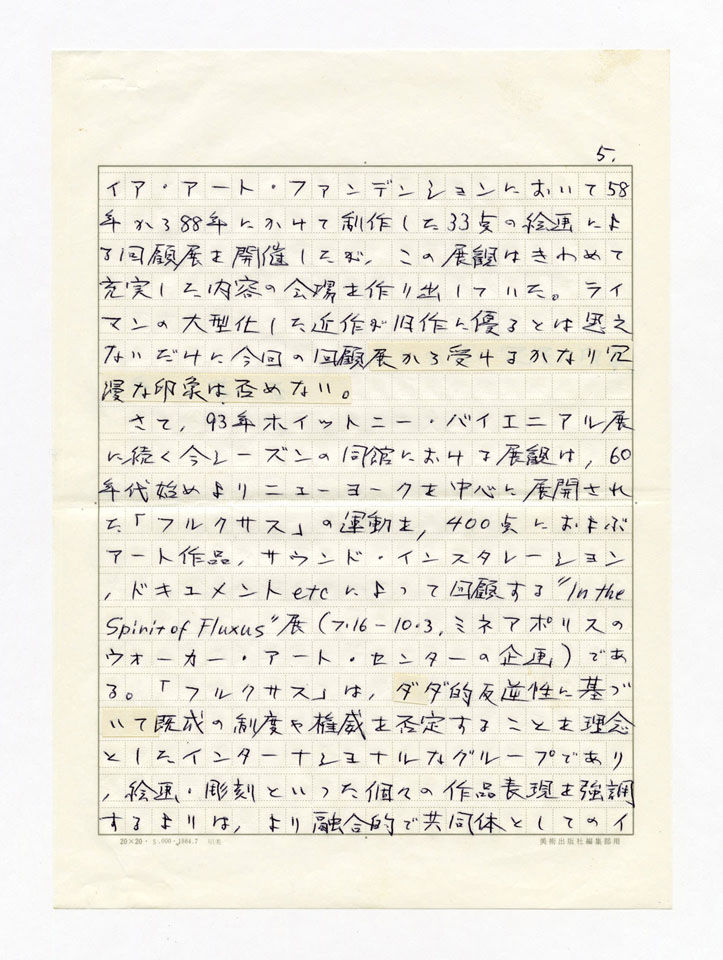 5.
イア・アート・ファンデンションにおいて58
年から88年にかけて制作した33点の絵画によ
る回顧展を開催したが, この展観はきわめて
充実した内容の会場を作り出していた。ライ
マンの大型化した近作が旧作に優るとは思え
ないだけに今回の回顧展から受けるかなり冗
漫な印象は否めない。
さて, 93年ホイットニー・バイエニアル展
に続く今シーズンの同館における展観は, 60
年代始めよりニューヨークを中心に展開され
た「フルクサス」の運動を, 400点におよぶ
アート作品, サウンド・インスタレーション
, ドキュメントetcによって回顧する"In the
Spirit of Fluxus"展(7.16-10.3, ミネアポリスの
ウォーカー・アート・センターの企画)であ
る。「フルクサス」は, ダダ的反逆性に基づ
いて既成の制度や権威を否定することを理念
としたインターナショナルなグループであり
, 絵画・彫刻といった個々の作品表現を強調
するよりは, より融合的で共同体としてのイ
20×20・5.000・1984.7 明美
美術出版社編集部用